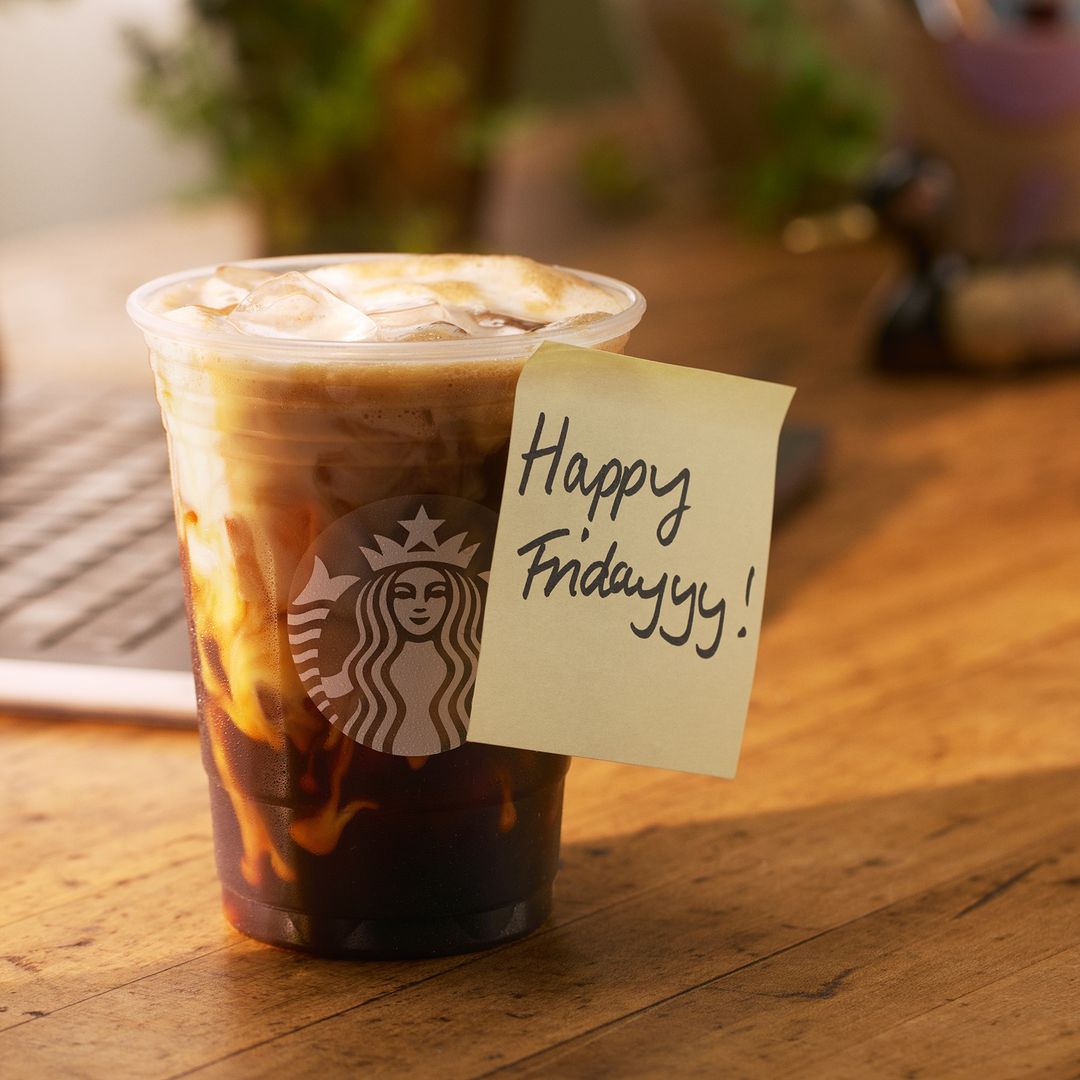 Happy
Fridayyy!